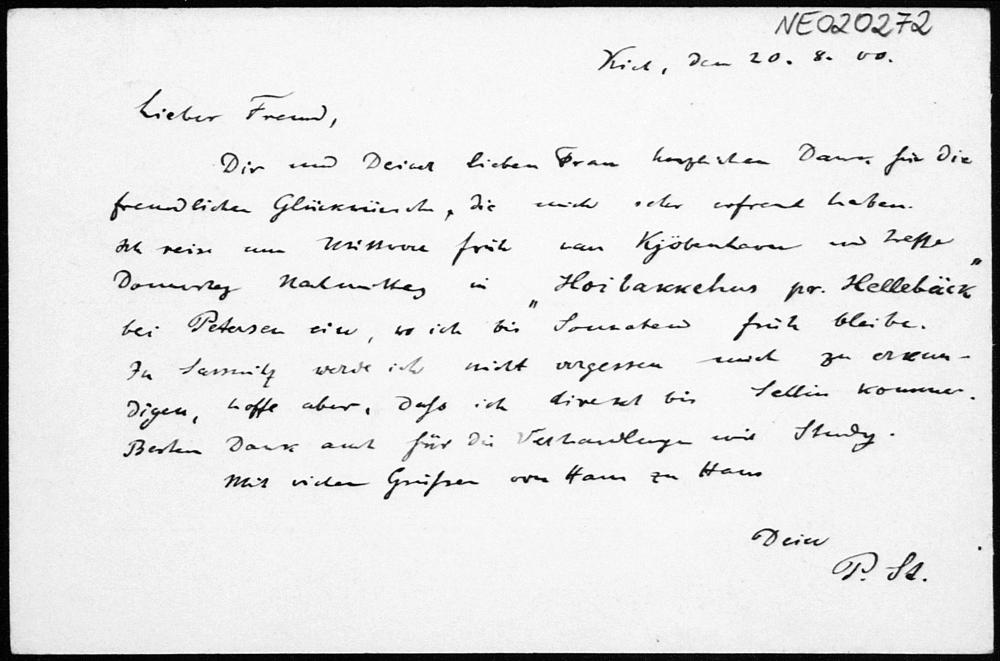 NE020272
Kiel, den 20. 8. 00.
Lieber Freund,
Dir und Deiner lieben Frau herzlichen Dank für die
freundlichen Glückwünsche, die mich sehr erfreut haben.
Ich reise am Mittwoch früh nach Kjöbenhavn und treffe
Donnerstag Nachmittag in „Hoibakkehus pr. Hellebäck"
bei Petersen ein, wo ich bis Sonnabend früh bleibe.
In Sassnitz werde ich nicht vergessen mich zu erkun-
digen, hoffe aber, daß ich direkt bis Sellin komme.
Besten Dank auch für die Verhandlungen mit Study.
Mit vielen Grüßen von Haus zu Haus
Dein
P. St.